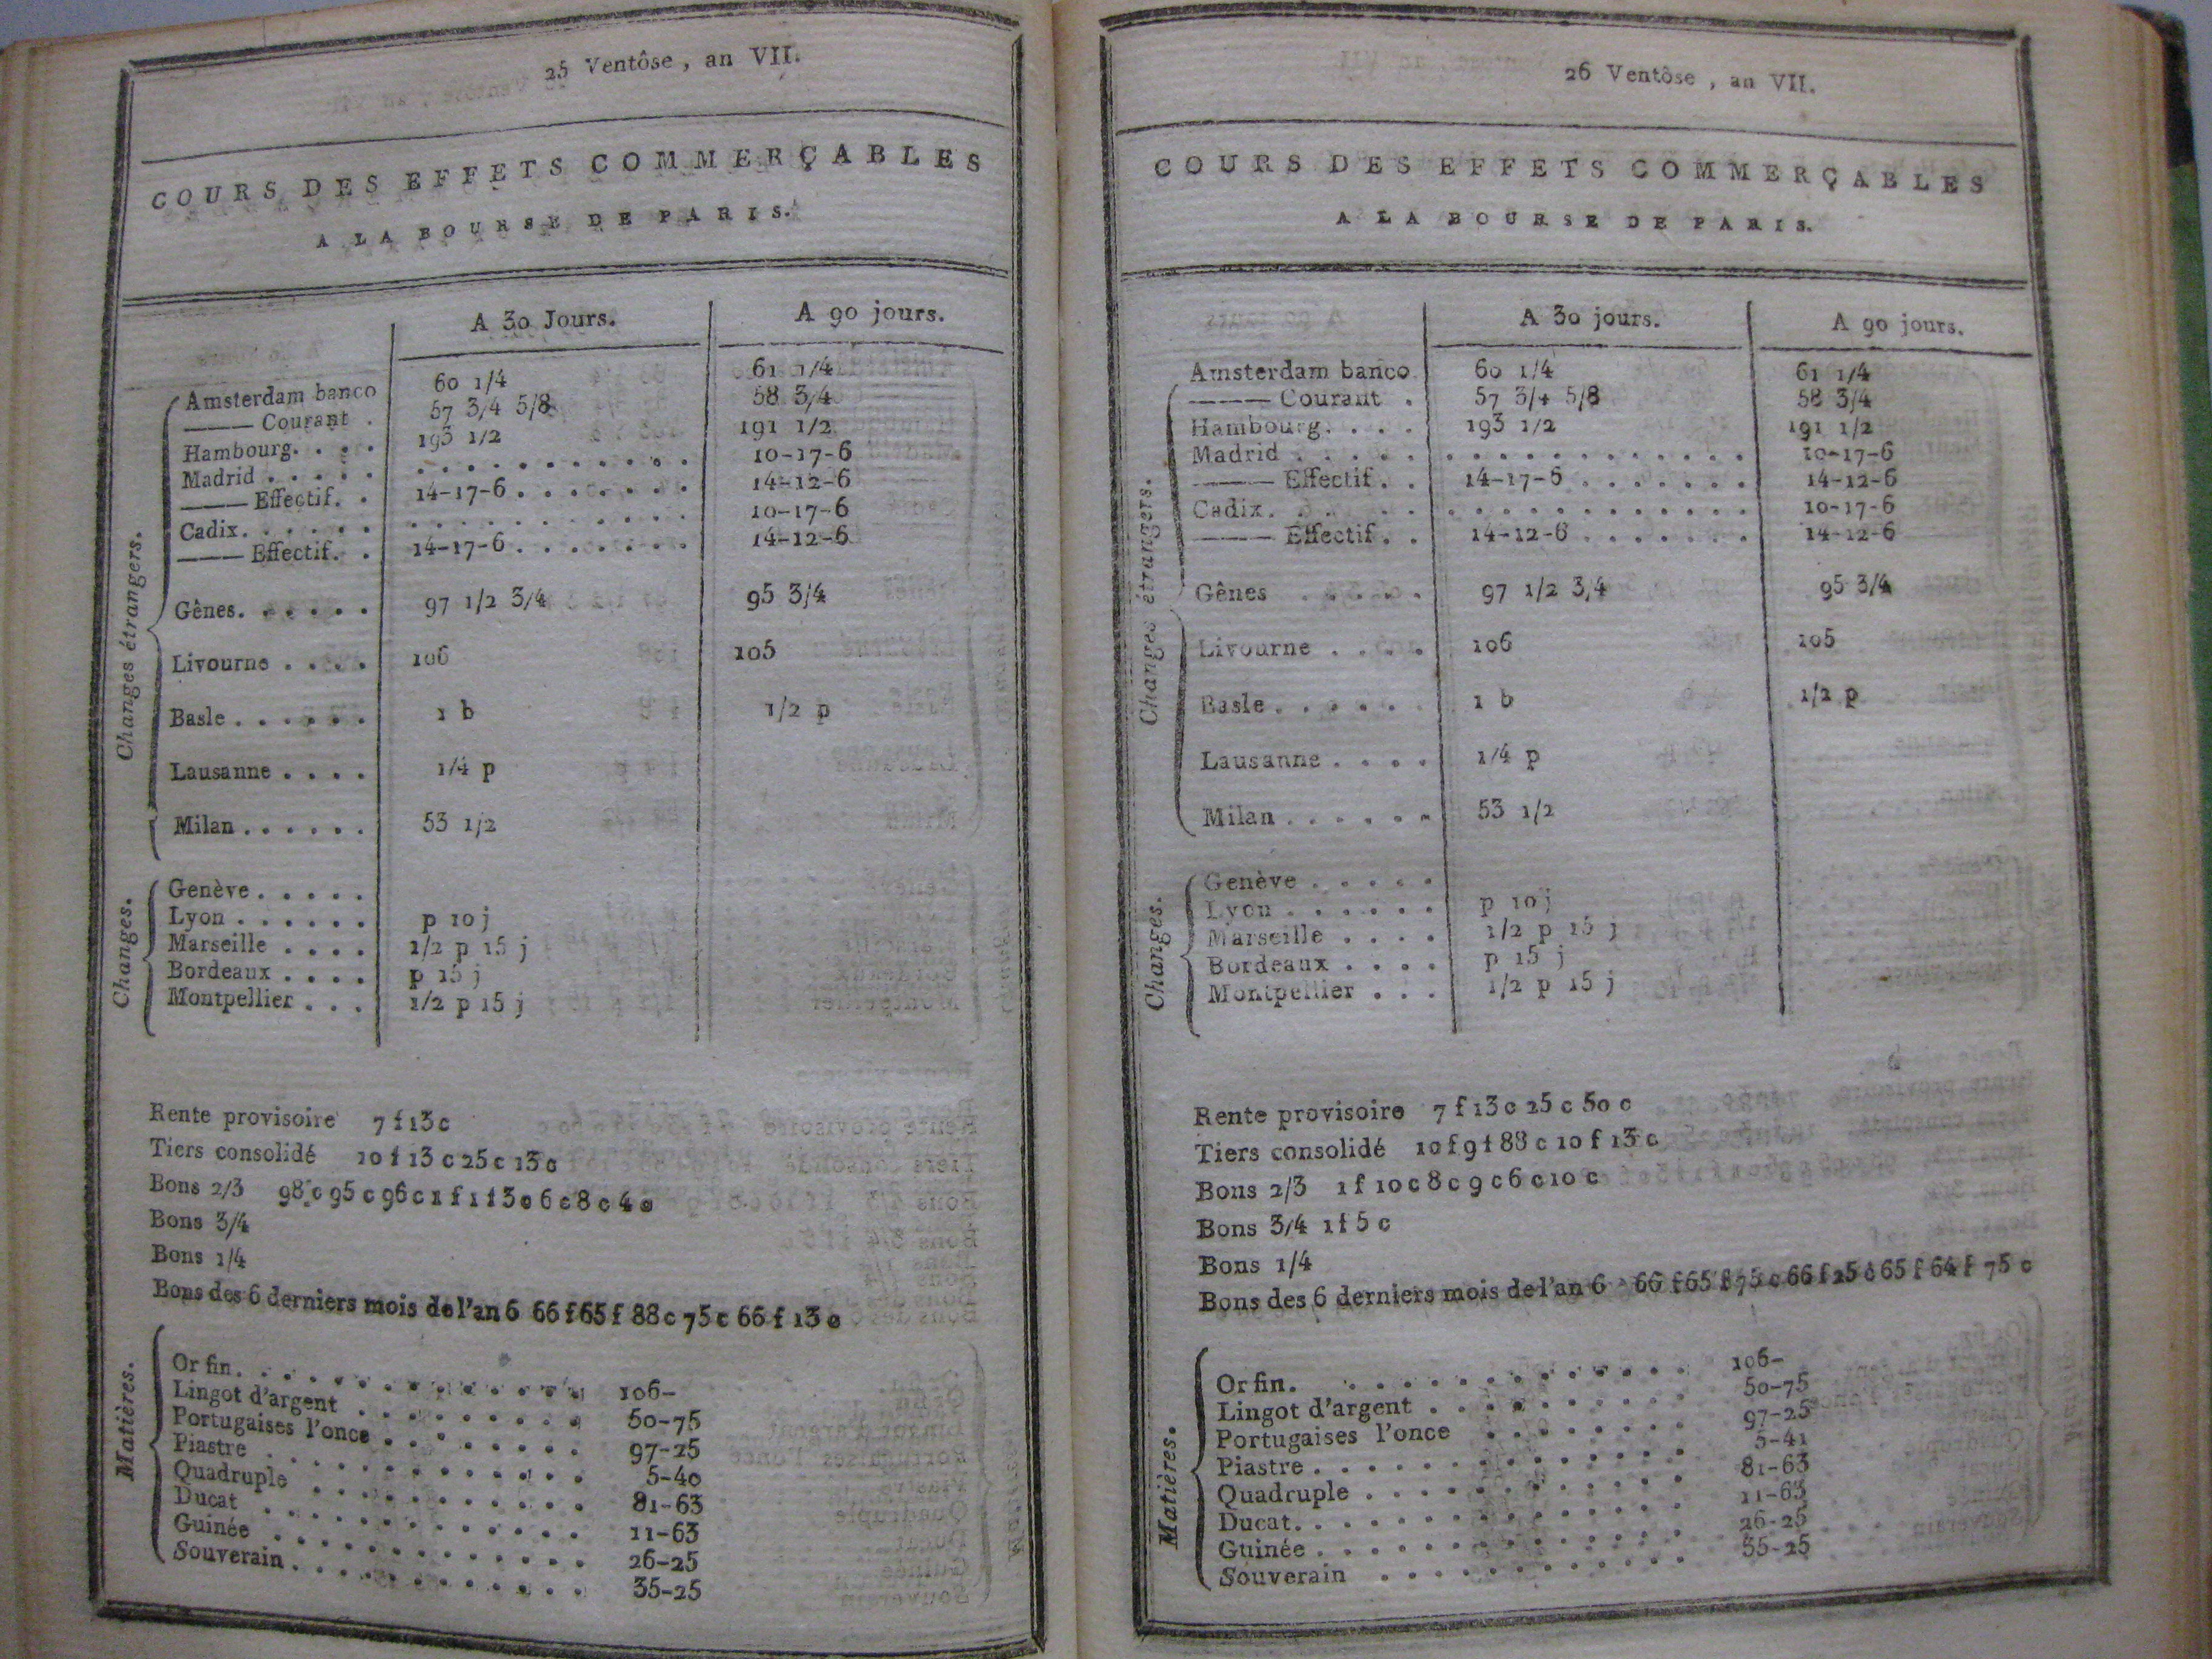 25 Ventôse, an VII.
COURS DES EFFETS COMMERÇABLES
A LA BOURSE DE PARIS.
A 30 Jours. A 90 jours.
Changes étrangers.
Amsterdam banco 60 1/4 61 1/4
—— Courant . 57 3/4 5/8 58 3/4
Hambourg. . . . 193 1/2 191 1/2
Madrid . . . . . . . . . . . . . . . . 10-17-6
—— Effectif. . 14-17-6 . . . . . . . 14-12-6
Cadix. . . . . . . . . . . . . . . . . 10-17-6
—— Effectif. . 14-17-6 . . . . . . . 14-12-6
Gênes. . . . . . 97 1/2 3/4 95 3/4
Livourne . . . . 106 105
Basle . . . . . . 1 b 1/2 p
Lausanne . . . . 1/4 p
Milan . . . . . . 53 1/2
Changes.
Genève . . . . .
Lyon . . . . . . p 10 j
Marseille . . . . 1/2 p 15 j
Bordeaux . . . . p 15 j
Montpellier . . . 1/2 p 15 j
Rente provisoire 7 f 13 c
Tiers consolidé 10 f 13 c 25 c 13 c
Bons 2/3 98 c 95 c 96 c 1 f 1 f 3 c 6 c 8 c 4 c
Bons 3/4
Bons 1/4
Bons des 6 derniers mois de l'an 6 66 f 65 f 88 c 75 c 66 f 13 c
Matières.
Or fin. . . . . . . . . . . . . . 106-
Lingot d'argent . . . . . . . . . 50-75
Portugaises l'once . . . . . . . . 97-25
Piastre . . . . . . . . . . . . . 5-40
Quadruple . . . . . . . . . . . 81-63
Ducat . . . . . . . . . . . . . 11-63
Guinée . . . . . . . . . . . . . 26-25
Souverain . . . . . . . . . . . . 35-25
26 Ventôse, an VII.
COURS DES EFFETS COMMERÇABLES
A LA BOURSE DE PARIS.
A 30 jours. A 90 jours.
Changes étrangers.
Amsterdam banco 60 1/4 61 1/4
—— Courant . 57 3/4 5/8 58 3/4
Hambourg. . . . 193 1/2 191 1/2
Madrid . . . . . . . . . . . . . . . . 10-17-6
—— Effectif. . 14-17-6 . . . . . . . 14-12-6
Cadix. . . . . . . . . . . . . . . . . 10-17-6
—— Effectif. . 14-12-6 . . . . . . . 14-12-6
Gênes . . . . . 97 1/2 3/4 95 3/4
Livourne . . . . 106 105
Basle . . . . . . 1 b 1/2 p
Lausanne . . . . 1/4 p
Milan . . . . . . 53 1/2
Changes.
Genève . . . . .
Lyon . . . . . . p 10 j
Marseille . . . . 1/2 p 15 j
Bordeaux . . . . p 15 j
Montpellier . . . 1/2 p 15 j
Rente provisoire 7 f 13 c 25 c 50 c
Tiers consolidé 10 f 9 f 88 c 10 f 13 c
Bons 2/3 1 f 10 c 8 c 9 c 6 c 10 c
Bons 3/4 1 f 5 c
Bons 1/4
Bons des 6 derniers mois de l'an 6 66 f 65 f 75 c 66 f 25 c 65 f 64 f 75 c
Matières.
Or fin. . . . . . . . . . . . . . 106-
Lingot d'argent . . . . . . . . . 50-75
Portugaises l'once . . . . . . . . 97-25
Piastre . . . . . . . . . . . . . 5-41
Quadruple . . . . . . . . . . . 81-63
Ducat. . . . . . . . . . . . . . 11-63
Guinée . . . . . . . . . . . . . 26-25
Souverain . . . . . . . . . . . . 35-25